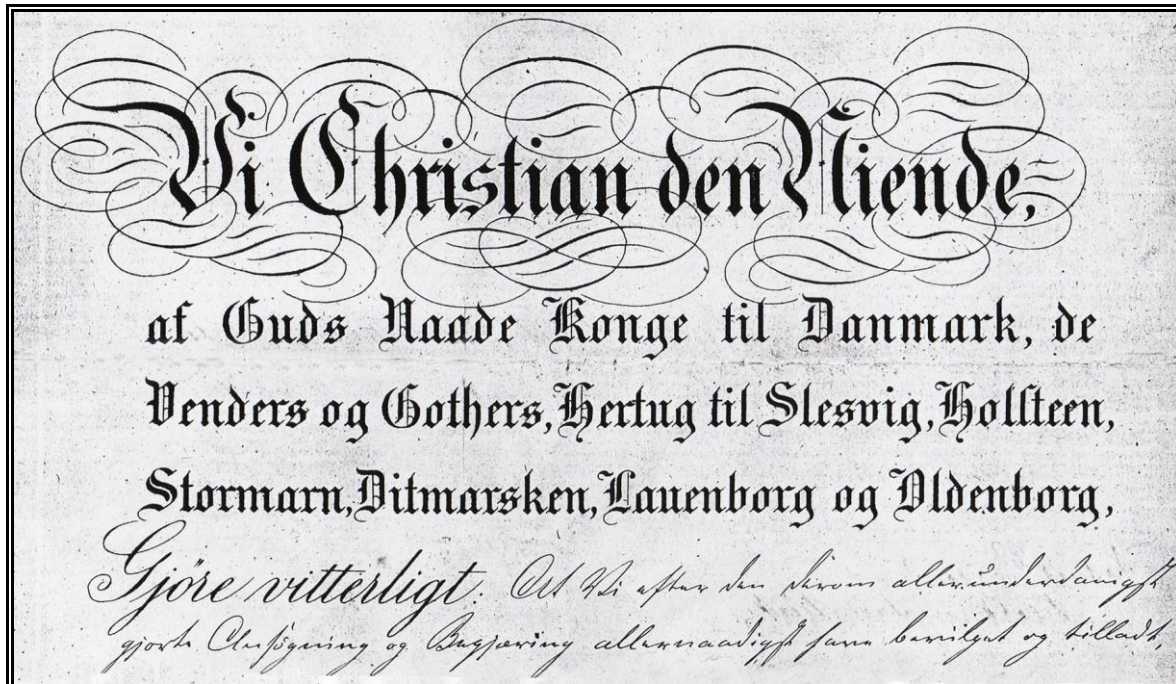 Vi Christian den Niende,
af Guds Naade Konge til Danmark, de
Venders og Gothers, Hertug til Slesvig, Holsteen,
Stormarn, Ditmarsken, Lauenborg og Oldenborg,
Gjöre vitterligt: At Vi efter den derom allerunderdanigst
gjorte Ansøgning og Begjæring allernaadigst have bevilget og tilladt,